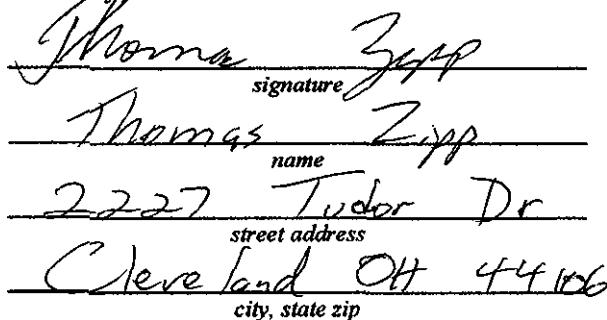 Thomas Zipp
signature
Thomas Zipp
name
2227 Tudor Dr
street address
Cleveland OH 44106
city, state zip